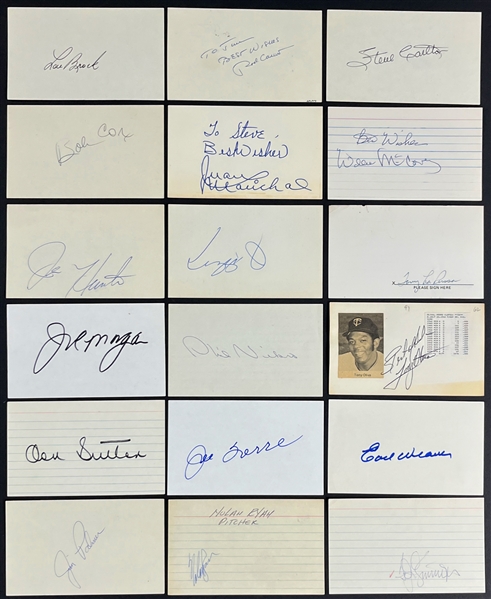 Lou Brock
To Jim
Best Wishes
Rod Carew
Steve Carlton
Bobby Cox
To Steve
Best Wishes
Juan
Marichal
Best Wishes
Willie McCovey
Jim Hunter
Reggie J
Tony La Russa
X
PLEASE SIGN HERE
Joe Morgan
Phil Niekro
Tony Oliva
Tony Oliva
Don Sutton
Joe Torre
Earl Weaver
Jim Palmer
NOLAN RYAN
PITCHER